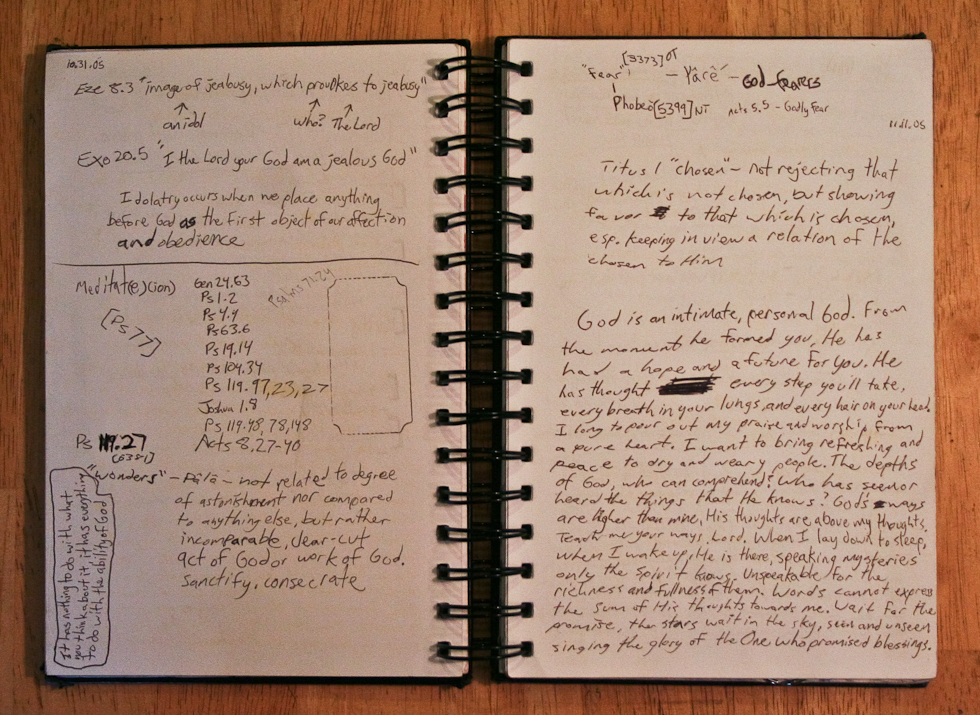 10.31.05
Eze 8.3 "image of jealousy, which provokes to jealousy"
an idol who? The Lord
Exo 20.5 "I the Lord your God am a jealous God"
Idolatry occurs when we place anything
before God as the first object of our affection
and obedience
Meditat(e)(ion)
[Ps 77]
Gen 24.63
Ps 1.2
Ps 4.4
Ps 63.6
Ps 19.14
Ps 104.34
Ps 119.97,23,27
Joshua 1.8
Ps 119.48,78,148
Acts 8.27-40
Psalms 71.24
Ps 119.27
[6381]
"wonders" - Pālā - not related to degree
of astonishment nor compared
to anything else, but rather
incomparable, clear-cut
act of God or work of God.
Sanctify, consecrate
It has nothing to do with what
you think about it, it has everything
to do with the ability of God
"Fear" [5373] OT - Yârê' - God-fearers
Phobeō [5399] NT Acts 5.5 - Godly Fear
11.01.05
Titus 1 "chosen" - not rejecting that
which is not chosen, but showing
favor to that which is chosen,
esp. keeping in view a relation of the
chosen to Him
God is an intimate, personal God. From
the moment he formed you, He has
had a hope and a future for you. He
has thought every step you'll take,
every breath in your lungs, and every hair on your head.
I long to pour out my praise and worship from
a pure heart. I want to bring refreshing and
peace to dry and weary people. The depths
of God, who can comprehend? Who has seen or
heard the things that He knows? God's ways
are higher than mine, His thoughts are above my thoughts.
Teach me your ways, Lord. When I lay down to sleep,
when I wake up, He is there, speaking mysteries
only the Spirit knows. Unspeakable for the
richness and fullness of them. Words cannot express
the sum of His thoughts towards me. Wait for the
promise, the stars wait in the sky, seen and unseen
singing the glory of the One who promised blessings.